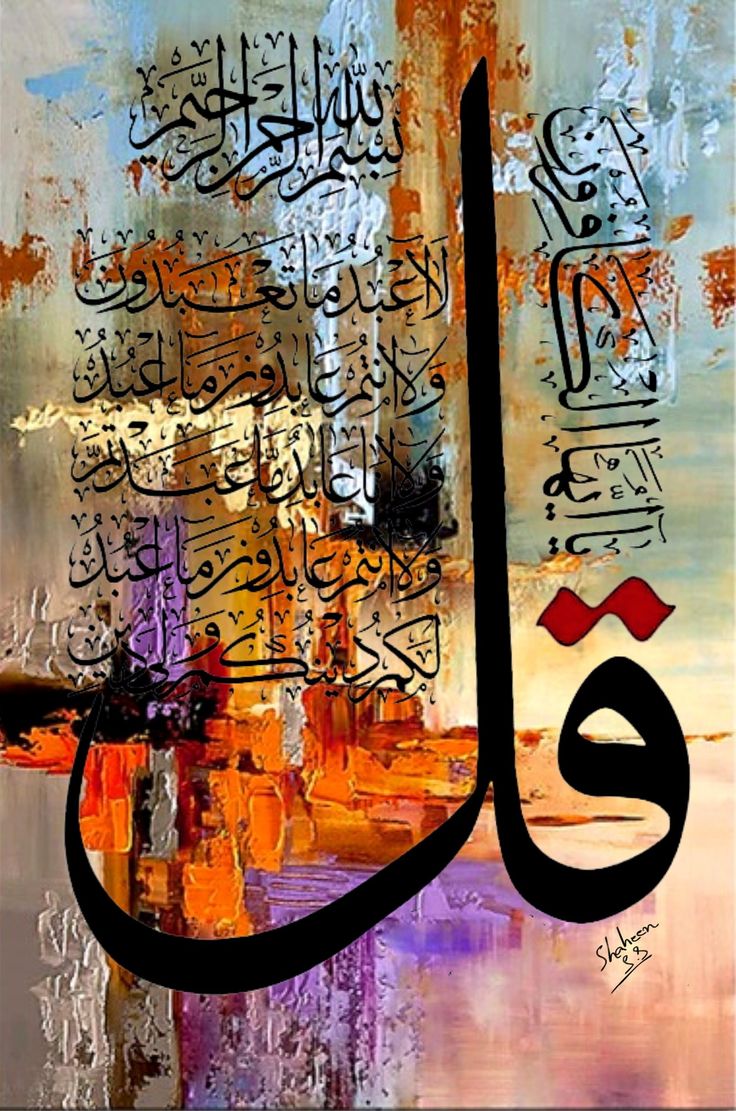 بِسْمِ اللهِ الرَّحْمٰنِ الرَّحِيْمِ
قل
يَا اَيُّهَا الْكَافِرُونَ
لَا اَعْبُدُ مَا تَعْبُدُونَ
وَلَا اَنْتُمْ عَابِدُونَ مَا اَعْبُدُ
وَلَا اَنَا عَابِدٌ مَّا عَبَدْتُّمْ
وَلَا اَنْتُمْ عَابِدُونَ مَا اَعْبُدُ
لَكُمْ دِيْنُكُمْ وَلِيَ دِيْنِ
Shaheen
S.S